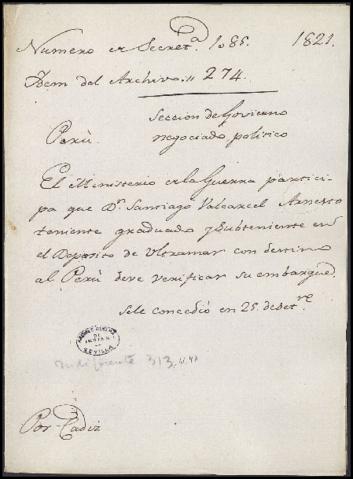 Numero de Secret.ª 1085. 1821.
Idem del Archivo. 274.
Seccion de Govierno
Perú. negociado politico
El Ministerio de la Guerra partici-
pa que Dn. Santiago Valcarcel Arnesto
teniente graduado y Subteniente en
el Deposito de Ultramar con destino
al Perú deve verificar su embarque.
Se le concedió en 25 de
INDIAS
SEVILLA
Indiferente 313
Por Cadiz